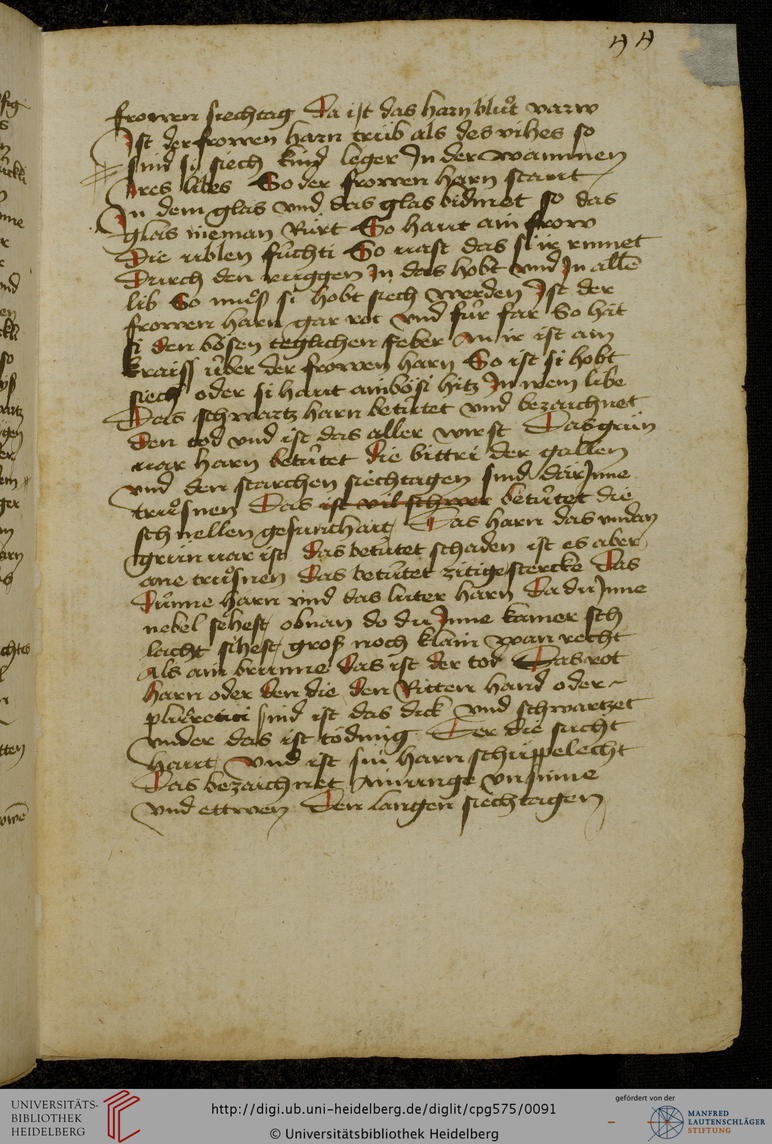 44
frowen siechtag Da ist das harn bluͦt varw
Ist der frowen harn trüb als des vihes so
sind si siech kind leger In der wammen
Ires libes So der frowen harn staut
In dem glas vnd das glas bidmet so das
glas nieman Rürt So haut ain frow
Die üblen füchti So nast das si ir rinnet
Durch den ruggen In das hobt vnd In allē
lib So muͦß si hobt siech werden Ist der
frowen harn gar rot vnd für far So hät
si den bösen teglichen feber An ir ist ain
kraiss über der frowen harn So ist si hobt
siech oder si haut ain bösi hitz In irem libe
Das schwartz harn betütet vnd bezaichnet
den tod vnd ist das aller wirst Das grün
var harn betütet die bittri der gallen
vnd den starchen siechtagen sind där Inne
truͦsnen Das ist vil schwer betütet die
schnellen gesunthait Das harn das vndan
grün var ist das betütet schaden ist es aber
one truͦsnen das betütet zitige stercke Das
Dünne harn vnd das luter harn Da du Inne
nebel sehest obnan do du Inne kainer sch
lacht sihest groß noch klain wan recht
Als ain brunne das ist der tod Das rot
harn oder den die den Ritten hand oder
pluͦretici sind ist das dick vnd schwartzet
vnder das ist tödmig Der die sucht
haut vnd ist sin harn schüppelecht
Das bezaichnet vnsinne
vnd ettwen Den langen siechtagen
UNIVERSITÄTS-
BIBLIOTHEK
HEIDELBERG
http://digi.ub.uni-heidelberg.de/diglit/cpg575/0091
© Universitätsbibliothek Heidelberg
gefördert von der
MANFRED
LAUTENSCHLÄGER
STIFTUNG